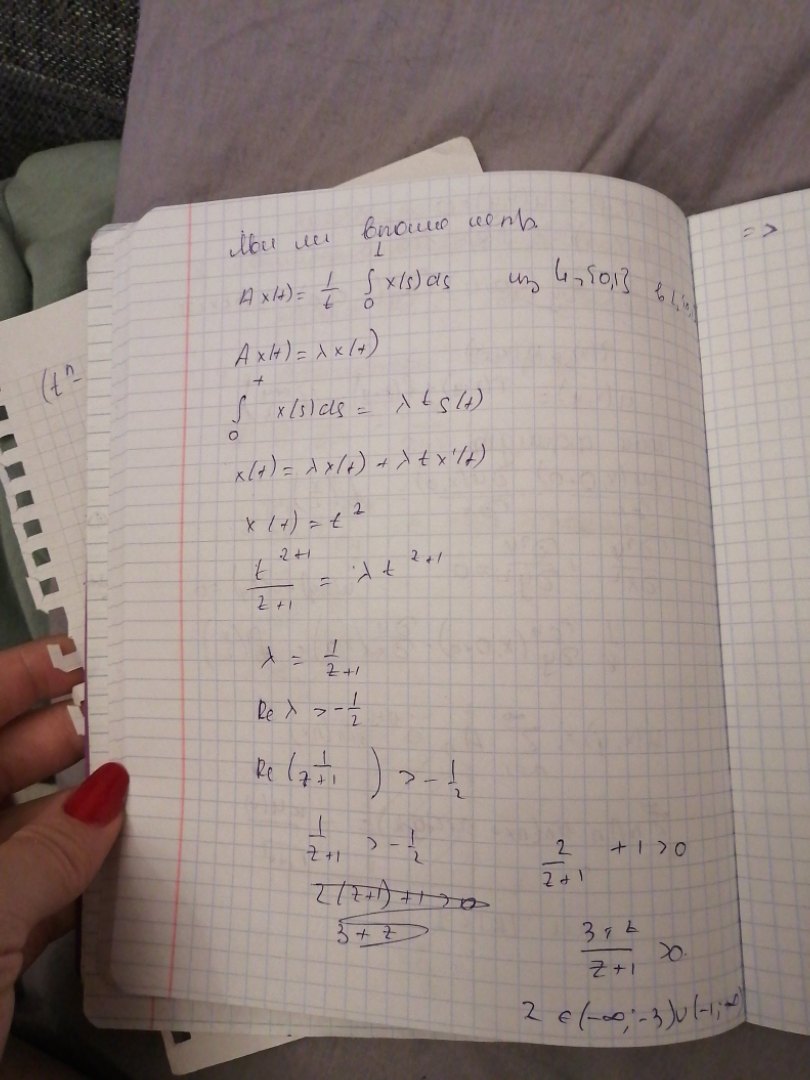 вполне непр.
A x(t) = 1/t ∫₀¹ x(s) ds из L₂[0,1] в L₂[0,1]
A x(t) = λ x(t)
∫₀ᵗ x(s) ds = λ t s(t)
x(t) = λ x(t) + λ t x'(t)
x(t) = t^z
t^(z+1) / (z+1) = λ t^(z+1)
λ = 1/(z+1)
Re λ > -1/2
Re (1/(z+1)) > -1/2
1/(z+1) > -1/2
2(z+1)+1 > 0
3 + z
2/(z+1) + 1 > 0
(3+z)/(z+1) > 0
z ∈ (-∞; -3) ∪ (-1; ∞)
=>
(tⁿ -